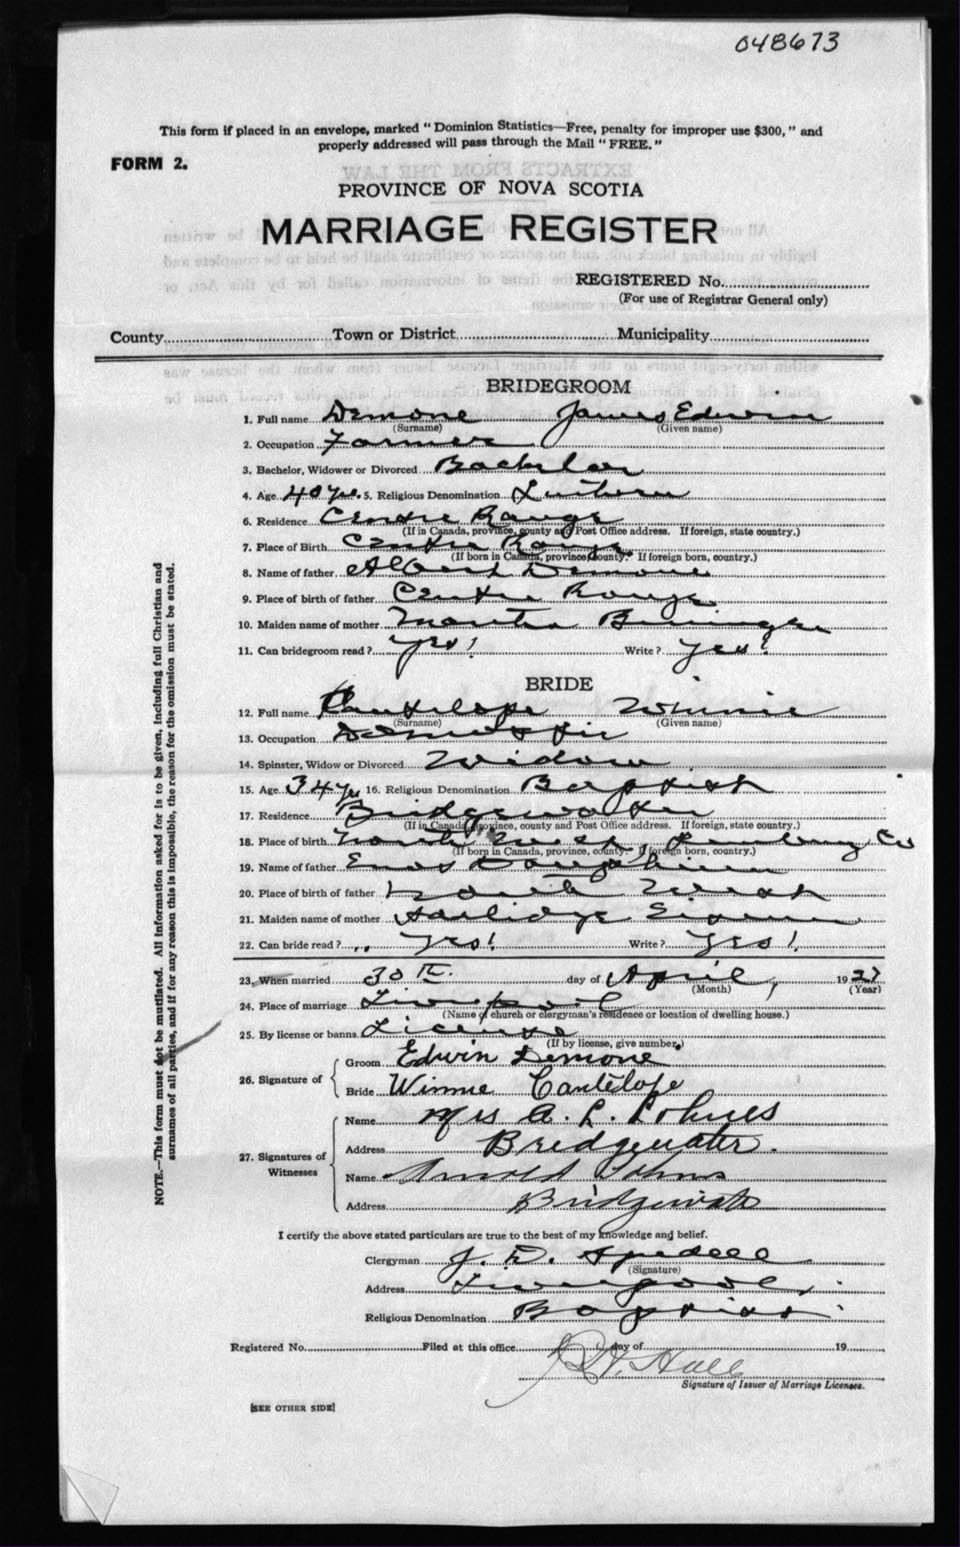 048673
This form if placed in an envelope, marked "Dominion Statistics—Free, penalty for improper use $300," and
properly addressed will pass through the Mail "FREE."
FORM 2.
PROVINCE OF NOVA SCOTIA
MARRIAGE REGISTER
REGISTERED No.
(For use of Registrar General only)
County Town or District Municipality
BRIDEGROOM
1. Full name Demone James Edwin
(Surname) (Given name)
2. Occupation Farmer
3. Bachelor, Widower or Divorced Bachelor
4. Age 40 yrs. 5. Religious Denomination
6. Residence Centre Range
(If in Canada, province, county and Post Office address. If foreign, state country.)
7. Place of Birth Centre Range
(If born in Canada, province county. If foreign born, country.)
8. Name of father Albert Demone
9. Place of birth of father Centre Range
10. Maiden name of mother Martha
11. Can bridegroom read? Yes! Write? Yes!
BRIDE
12. Full name Cantelope Winnie
(Surname) (Given name)
13. Occupation Domestic
14. Spinster, Widow or Divorced Widow
15. Age 34 yrs 16. Religious Denomination Baptist
17. Residence Bridgewater
(If in Canada, province, county and Post Office address. If foreign, state country.)
18. Place of birth North West, Lunenburg Co
(If born in Canada, province, county. If foreign born, country.)
19. Name of father Enos
20. Place of birth of father North West
21. Maiden name of mother
22. Can bride read? Yes! Write? Yes!
23. When married 30th. day of April, 1927
(Month) (Year)
24. Place of marriage Liverpool
(Name of church or clergyman's residence or location of dwelling house.)
25. By license or banns License
(If by license, give number.)
26. Signature of
Groom Edwin Demone
Bride Winnie Cantelope
27. Signatures of Witnesses
Name Mrs A. L. Lohnes
Address Bridgewater.
Name Arnold Lohnes
Address Bridgewater
I certify the above stated particulars are true to the best of my knowledge and belief.
Clergyman J. D. Spidell
(Signature)
Address Liverpool
Religious Denomination Baptist
Registered No. Filed at this office day of 19
Hall
Signature of Issuer of Marriage Licenses.
[SEE OTHER SIDE]
NOTE.—This form must not be mutilated. All information asked for is to be given, including full Christian and
surnames of all parties, and if for any reason this is impossible, the reason for the omission must be stated.